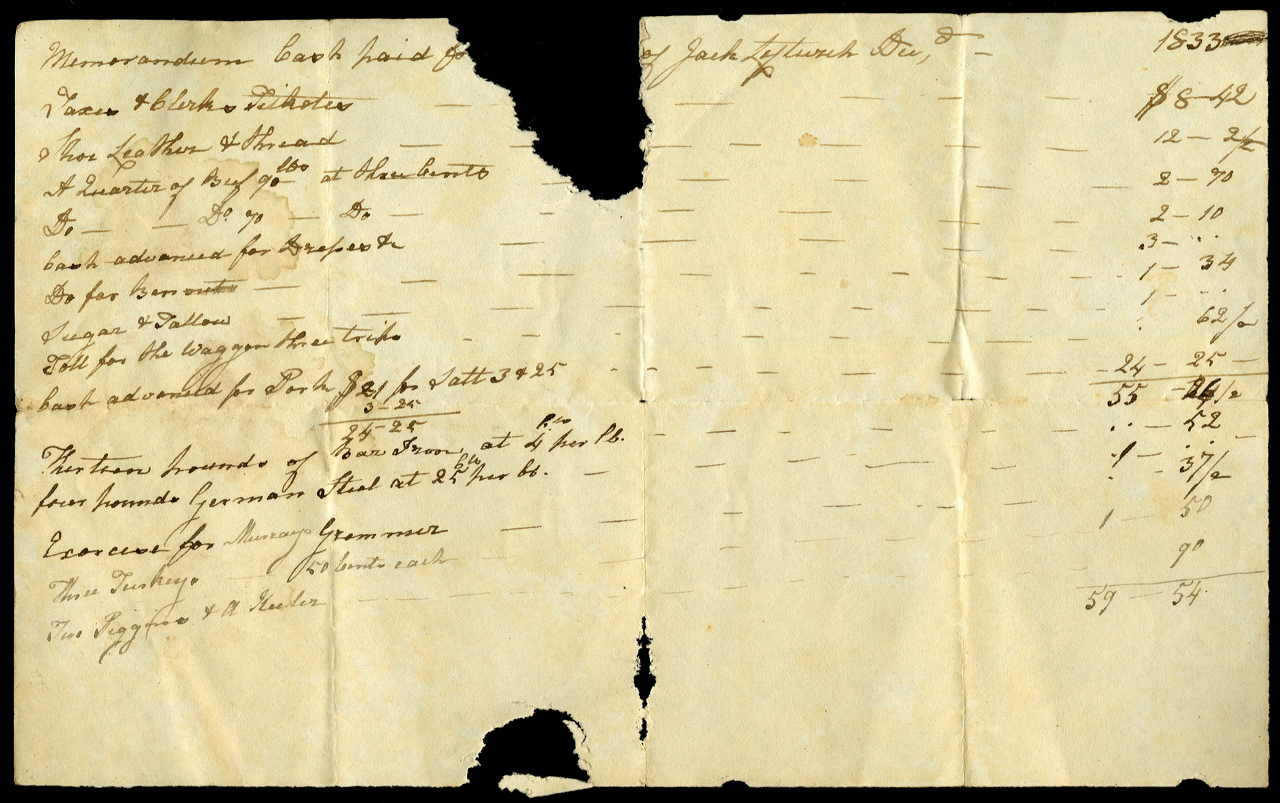 Memorandum Cash paid fo of Jack Leftwich Decd 1833
Taxes & Clerks Tickets $8-42
Shoe Leather & thread 12-2½
A Quarter of Beef 90 lbs at three Cents 2-70
Do - - Do 70 - Do - 2-10
Cash advanced for 3-..
Do for 1-34
Sugar & Tallow 1-..
Toll for the Waggon three trips 62½
Cash advanced for Pork $21 for Salt 3 & 25 24-25
3-25 55-½
24-25
Thirteen pounds of Bar Iron, at 4 Cts per lb. ..-52
four pounds German Steel at 25 Cts per lb. 1-..
Exorcise for Murrays Grammer 37½
Three Turkeys 50 Cents each 1-50
Two Piggins & A Keeler 90
59-54